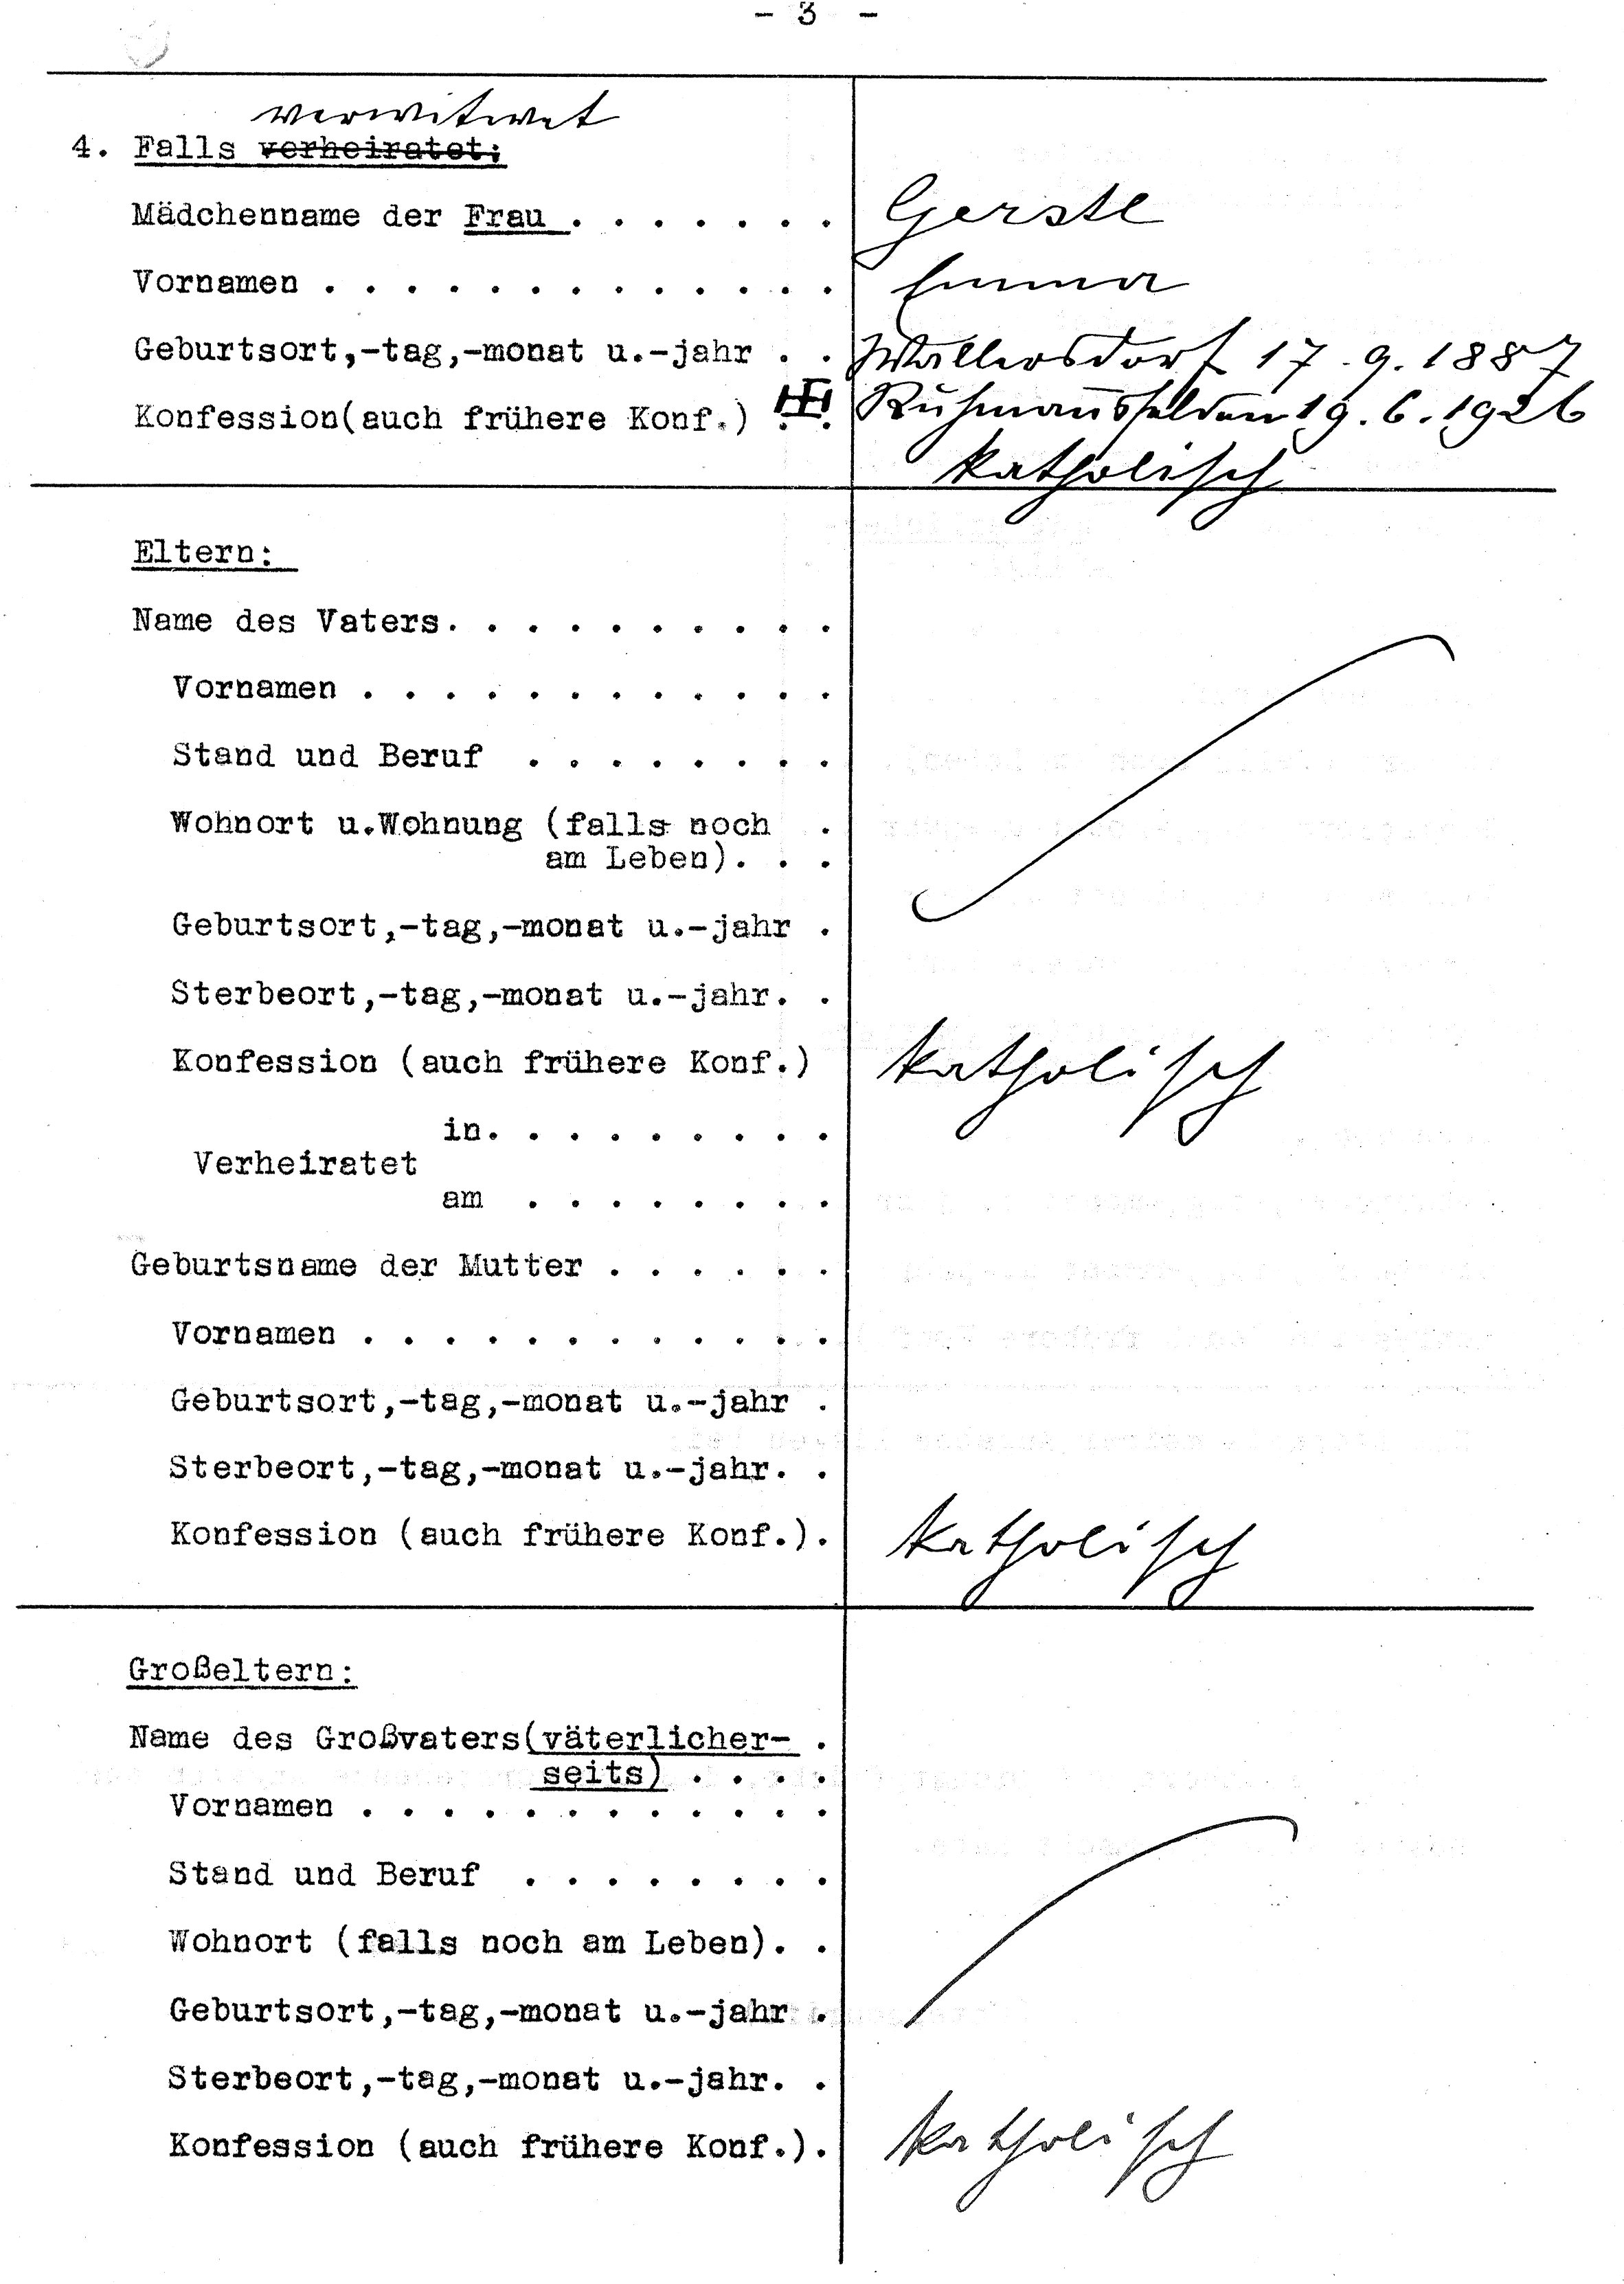 - 3 -
verwitwet
4. Falls verheiratet:
Mädchenname der Frau . . . . . . . Gerstl
Vornamen . . . . . . . . . . . . . Emma
Geburtsort,-tag,-monat u.-jahr . . Wallersdorf 17.9.1887
Konfession(auch frühere Konf.) . . Ruhmannsfelden 19.6.1926
katholisch
Eltern:
Name des Vaters. . . . . . . . . .
Vornamen . . . . . . . . . . . .
Stand und Beruf . . . . . . . .
Wohnort u.Wohnung (falls noch .
am Leben). . .
Geburtsort,-tag,-monat u.-jahr .
Sterbeort,-tag,-monat u.-jahr. .
Konfession (auch frühere Konf.) katholisch
in. . . . . . . . .
Verheiratet
am . . . . . . . .
Geburtsname der Mutter . . . . . .
Vornamen . . . . . . . . . . . .
Geburtsort,-tag,-monat u.-jahr .
Sterbeort,-tag,-monat u.-jahr. .
Konfession (auch frühere Konf.). katholisch
Großeltern:
Name des Großvaters(väterlicher- .
seits) . . . .
Vornamen . . . . . . . . . . . .
Stand und Beruf . . . . . . . .
Wohnort (falls noch am Leben). .
Geburtsort,-tag,-monat u.-jahr .
Sterbeort,-tag,-monat u.-jahr. .
Konfession (auch frühere Konf.). katholisch